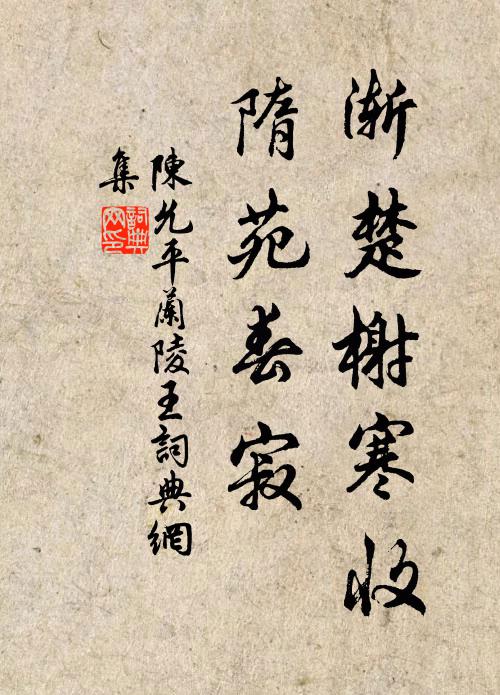 漸楚榭寒收
隋苑春寂
陳允平蘭陵王詞典網
集
詞典
网印